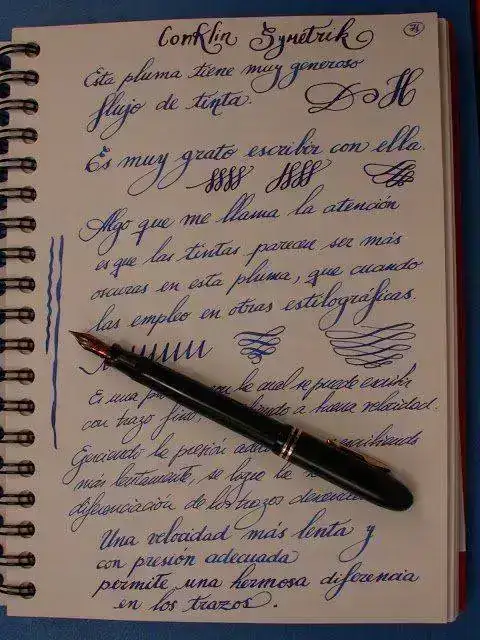 Conklin Symetrik 71
Esta pluma tiene muy generoso
flujo de tinta. D H
Es muy grato escribir con ella.
Algo que me llama la atención
es que las tintas parecen ser más
oscuras en esta pluma, que cuando
las empleo en otras estilográficas.
Es una con la cual se puede escribir
con trazo fino, a buena velocidad.
Ejerciendo la presión escribiendo
más lentamente, se logra la
diferenciación de los trazos
Una velocidad más lenta y
con presión adecuada
permite una hermosa diferencia
en los trazos.